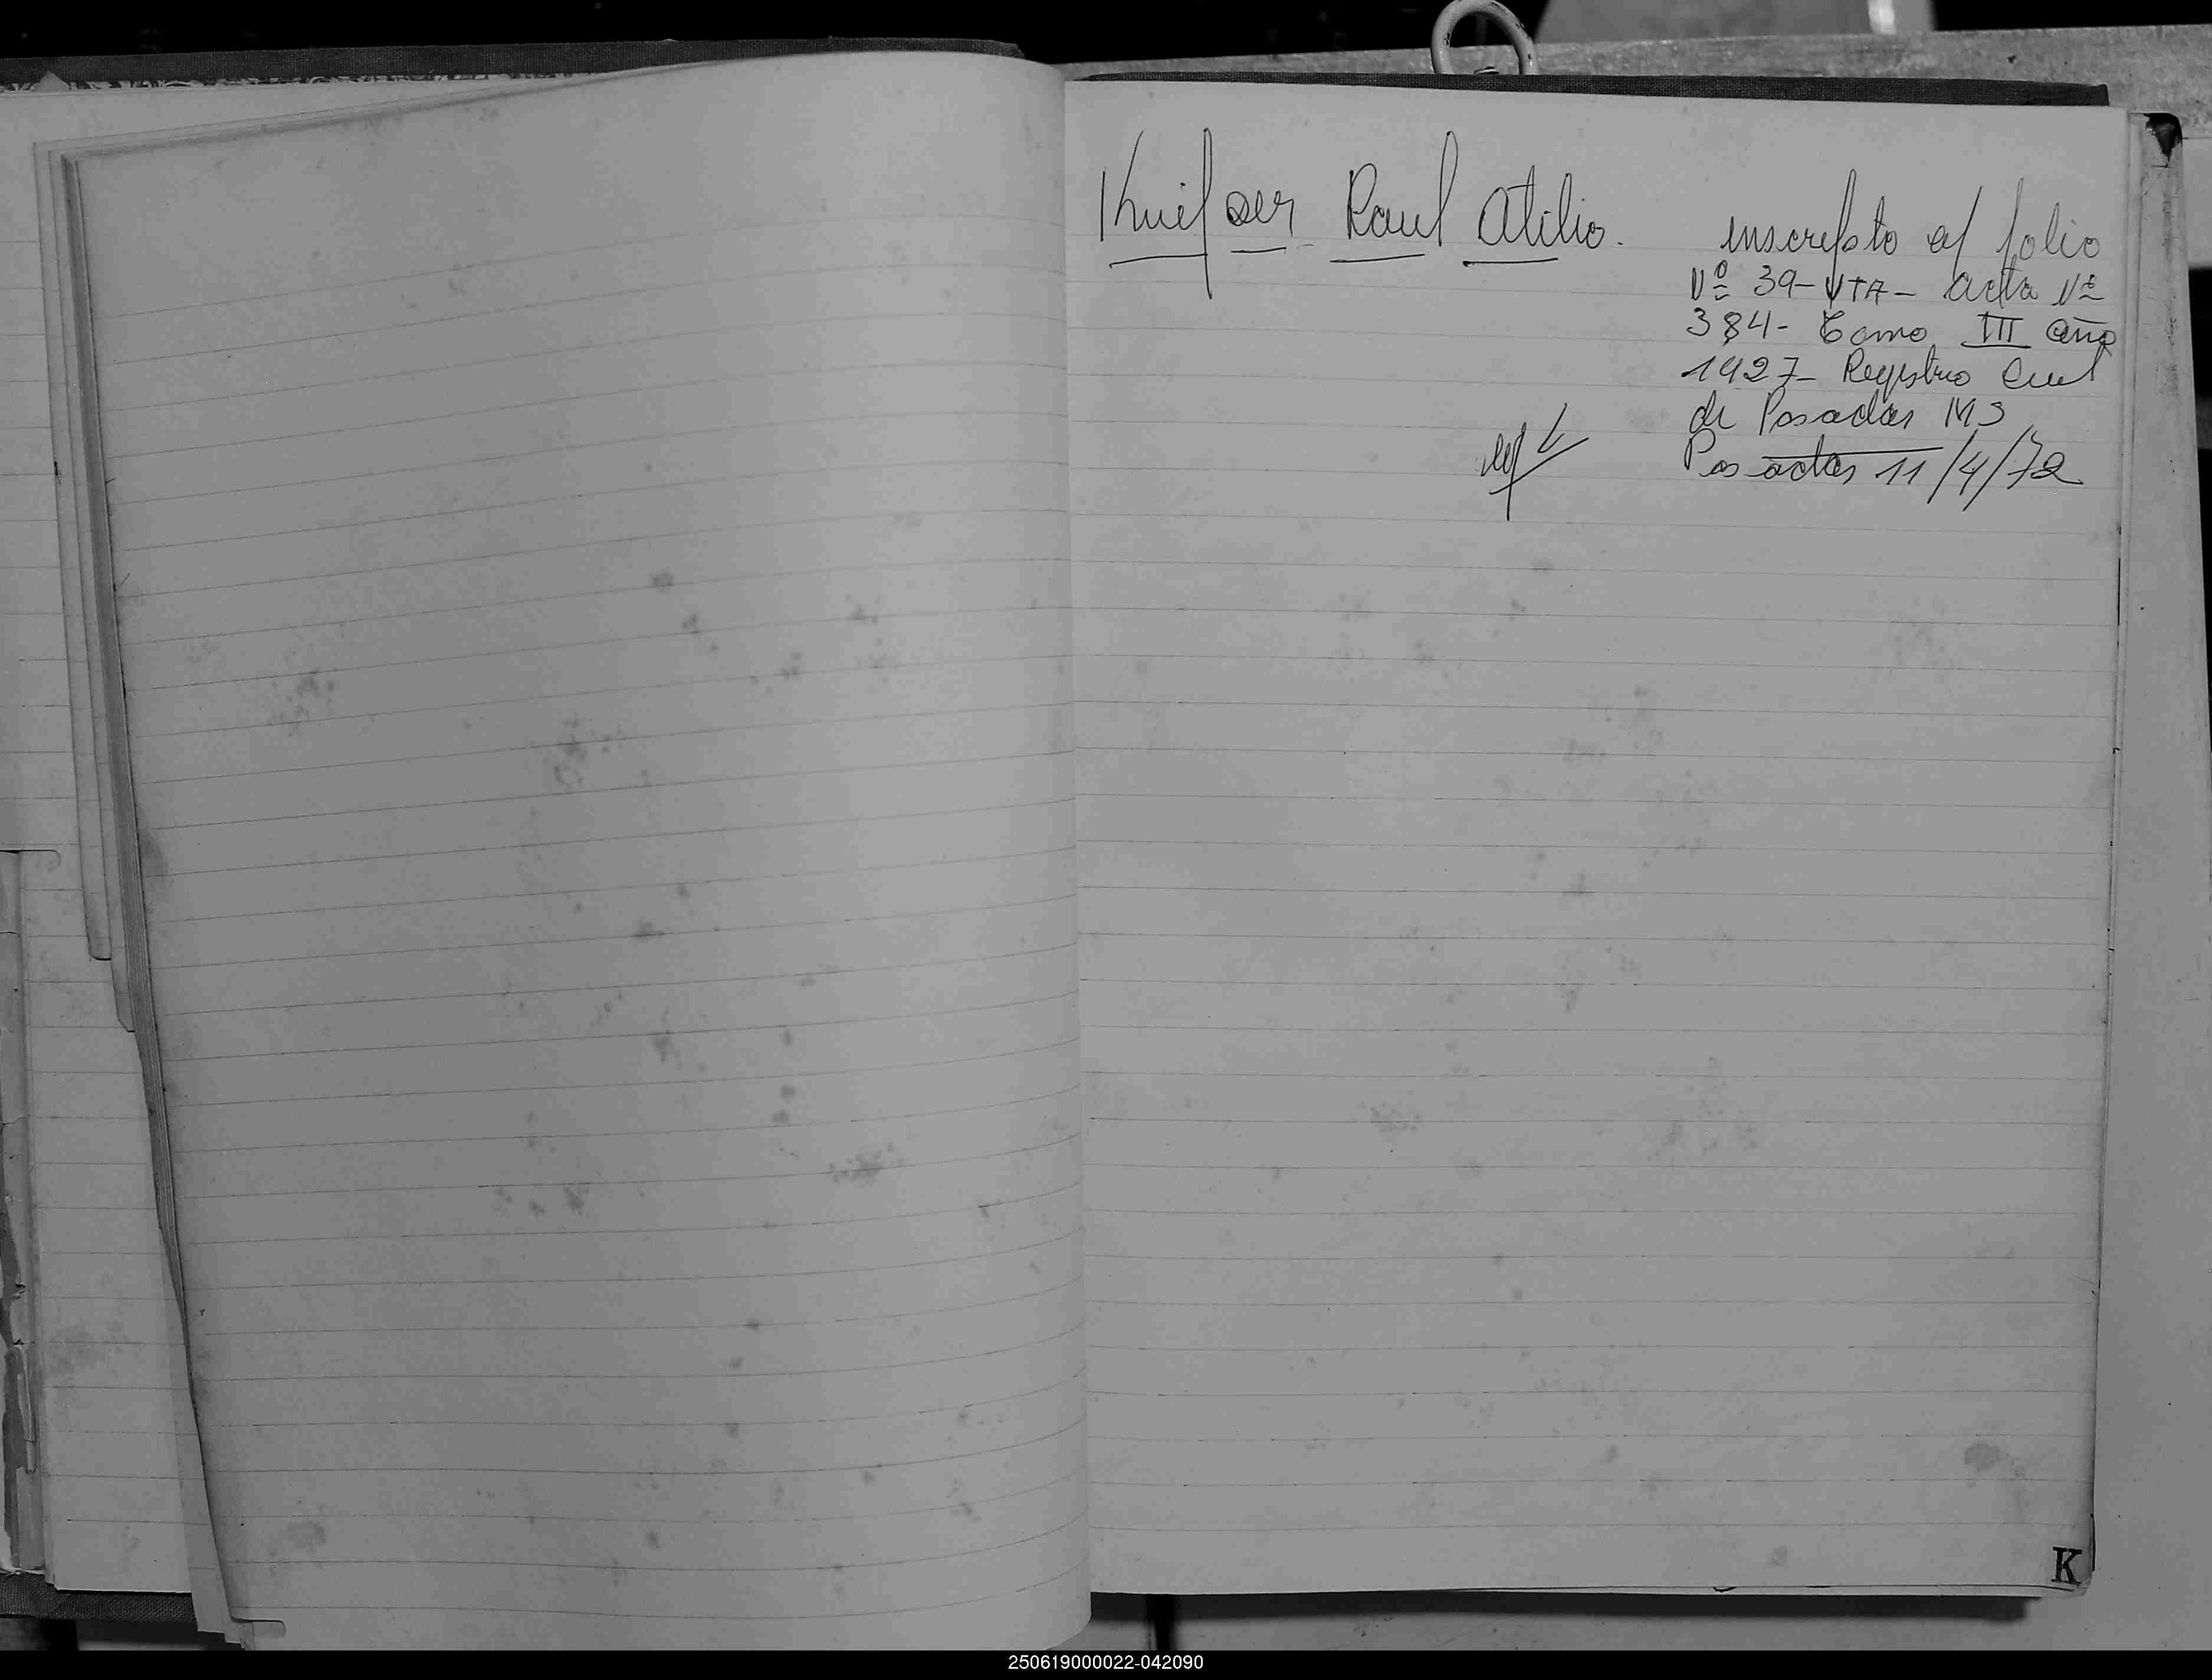 Knifser Raul Atilio. inscripto al folio
Nº 39- VTA- acta Nº
384- Tomo III año
1927- Registro Civil
de Posadas MS
Posadas 11/4/72
K
250619000022-042090